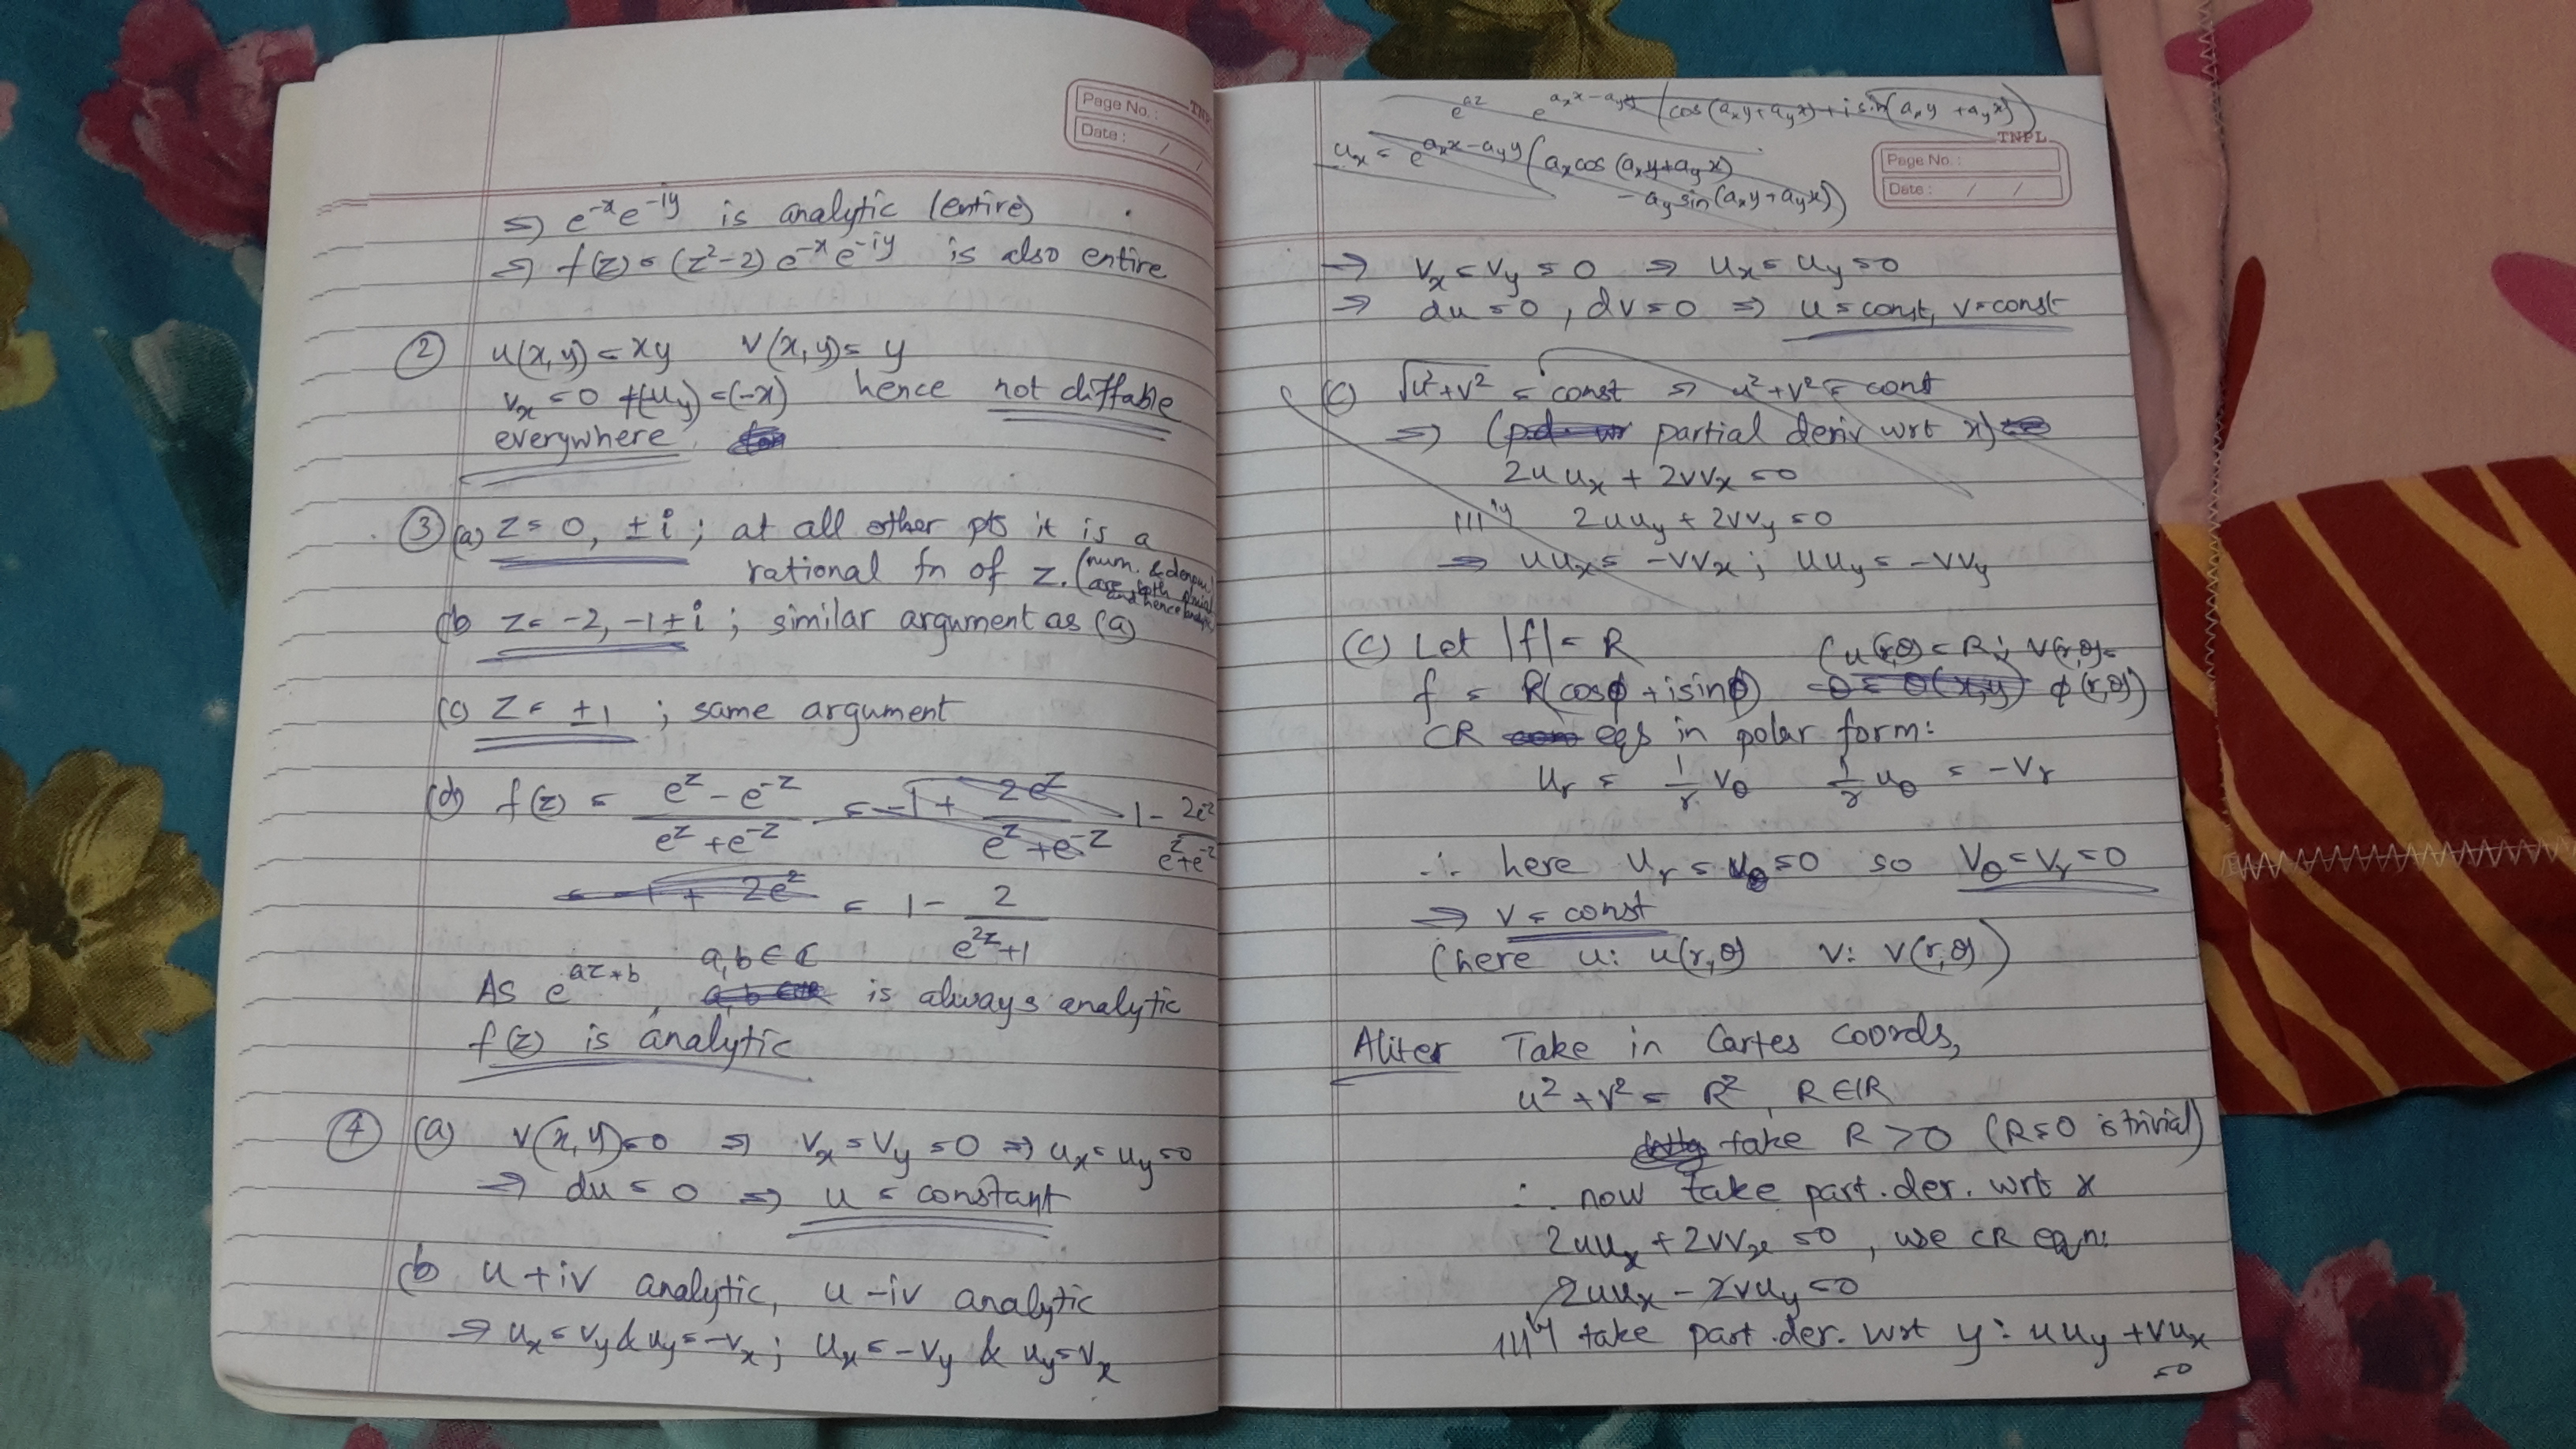 Page No.:
Date: / /
⇒ e^-x e^-iy is analytic (entire)
⇒ f(z) = (z²-2) e^-x e^-iy is also entire
② u(x,y) = xy v(x,y) = y
v_x = 0 ≠ (-u_y) = (-x) hence not diffable
everywhere
③ (a) z = 0, ±i ; at all other pts it is a
rational fn of z. (num. & denom.
are both
and hence
(b) z = -2, -1±i ; similar argument as (a)
(c) z = ±1 ; same argument
(d) f(z) = e^z - e^-z / e^z + e^-z = 1 - 2e^-z / e^z + e^-z
= 1 - 2 / e^2z + 1
As e^az+b a, b ∈ ℂ is always analytic
f(z) is analytic
④ (a) v(x,y) = 0 ⇒ v_x = v_y = 0 ⇒ u_x = u_y = 0
⇒ du = 0 ⇒ u = constant
(b) u + iv analytic, u - iv analytic
⇒ u_x = v_y & u_y = -v_x ; u_x = -v_y & u_y = v_x
e^az e^a_x x - a_y y (cos(a_x y + a_y x) + i sin(a_x y + a_y x))
TNPL
Page No.:
Date: / /
u_x = e^a_x x - a_y y (a_x cos(a_x y + a_y x)
- a_y sin(a_x y + a_y x))
⇒ v_x = v_y = 0 ⇒ u_x = u_y = 0
⇒ du = 0, dv = 0 ⇒ u = const, v = const
(c) √u²+v² = const ⇒ u²+v² = const
⇒ (partial deriv wrt x)
2u u_x + 2v v_x = 0
|||ly 2u u_y + 2v v_y = 0
⇒ u u_x = -v v_x ; u u_y = -v v_y
(c) Let |f| = R (u(r,θ) = R ; v(r,θ) =
f = R(cosϕ + i sinϕ) ϕ(r,θ))
CR eqs in polar form:
u_r = 1/r v_θ 1/r u_θ = -v_r
∴ here u_r = u_θ = 0 so v_θ = v_r = 0
⇒ v = const
(here u: u(r,θ) v: v(r,θ))
Aliter Take in Cartes coords,
u² + v² = R² R ∈ ℝ
take R > 0 (R = 0 is trivial)
∴ now take part. der. wrt x
2u u_x + 2v v_x = 0, use CR eqn:
2u u_x - 2v u_y = 0
|||ly take part. der. wrt y: u u_y + v u_x
= 0